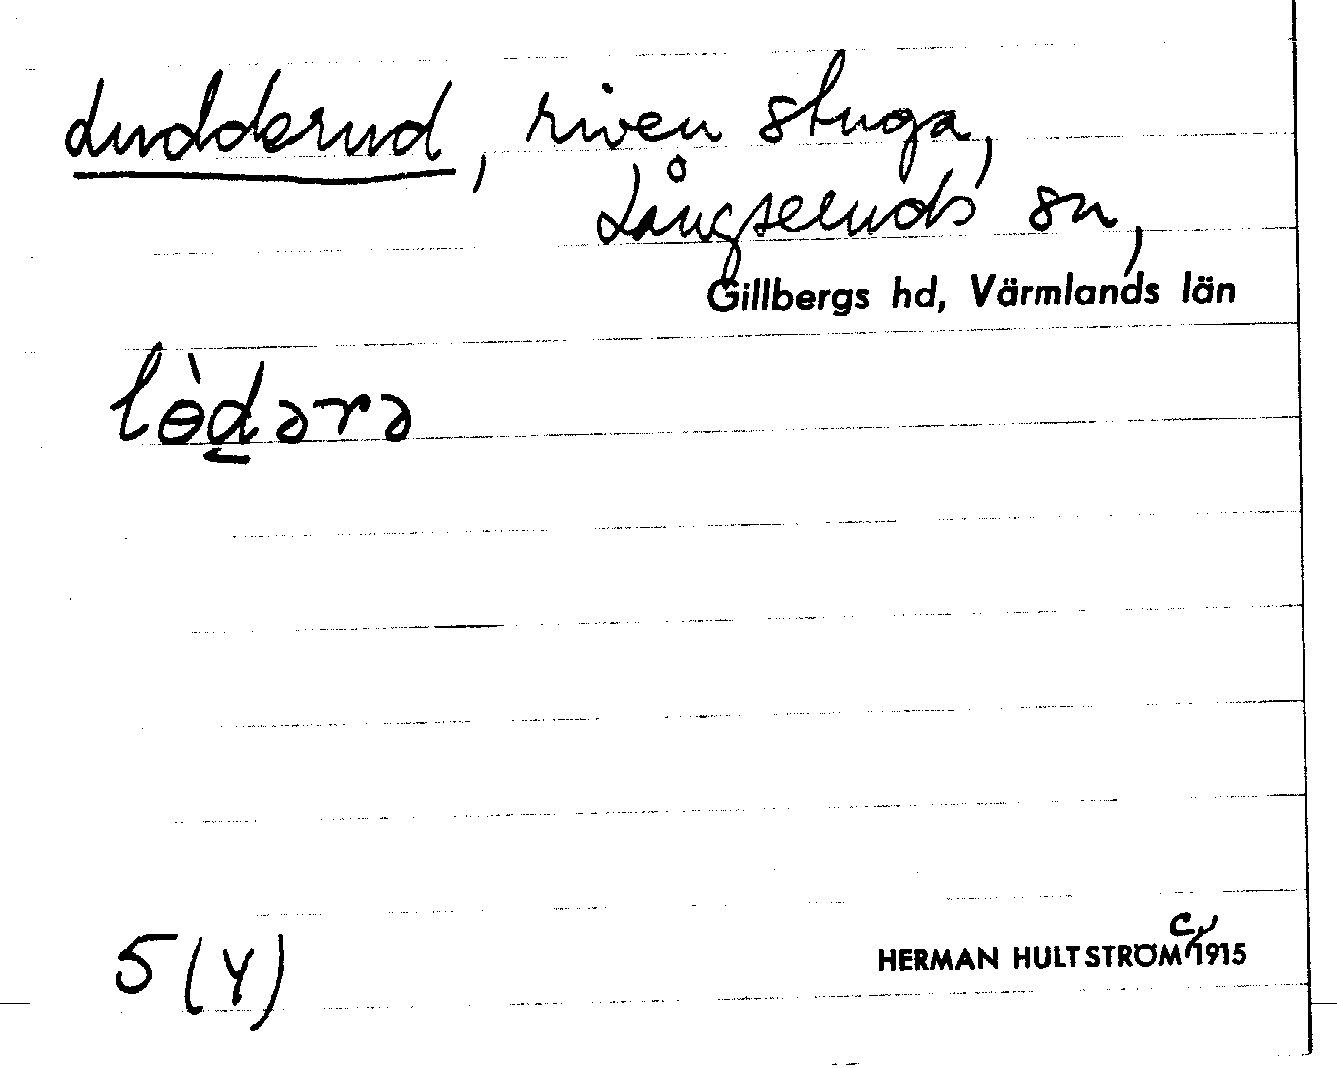 Ludderud, riven stuga,
Långseruds sn,
Gillbergs hd, Värmlands län
lɵ̀d̲ərə
5 (Y)
HERMAN HULTSTRÖM c. 1915